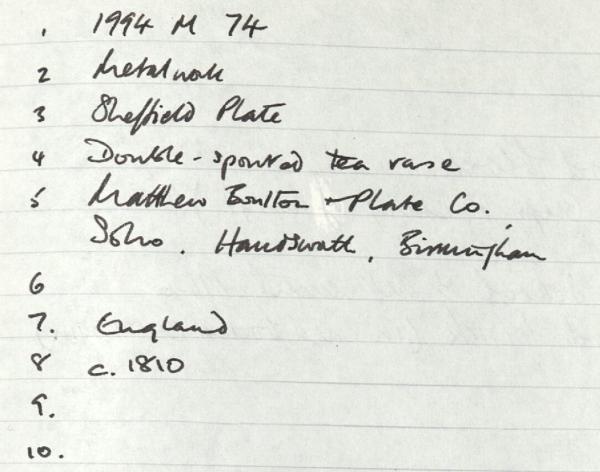 1 1994 M 74
2 Metalwork
3 Sheffield Plate
4 Double-spouted tea vase
5 Matthew Boulton + Plate Co.,
Soho, Handsworth, Birmingham
6
7. England
8 c. 1810
9.
10.